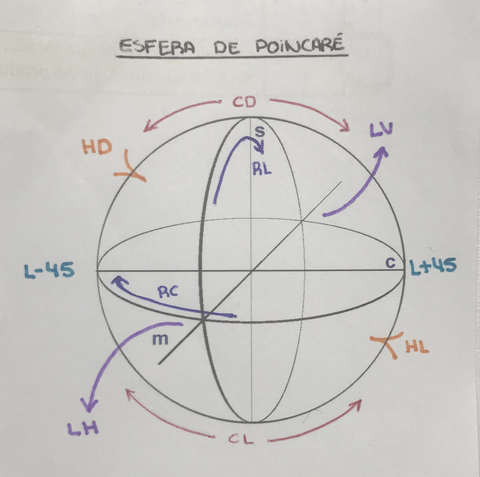 ESFERA DE POINCARÉ
CD
S
LV
HD
RL
L-45
C
L+45
RC
m
HL
LH
CL